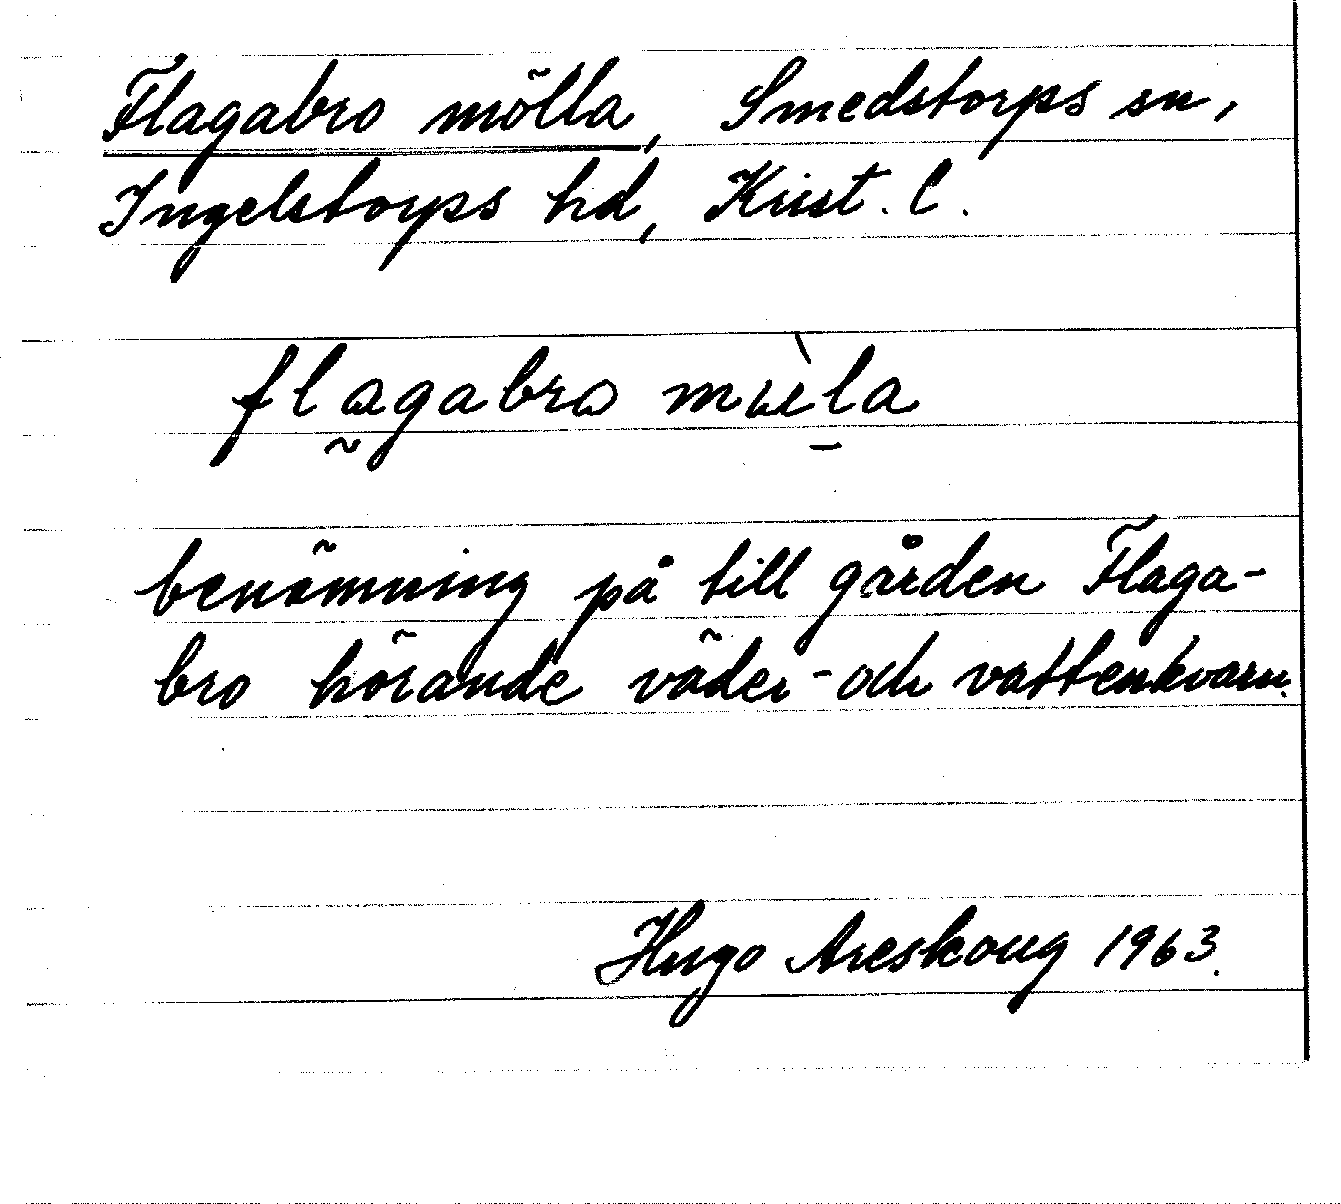 Flagabro mölla, Smedstorps sn,
Ingelstorps hd, Krist. l.
flagabro
benämning på till gården Flaga-
bro hörande väder- och vattenkvarn.
Hugo Areskoug 1963.